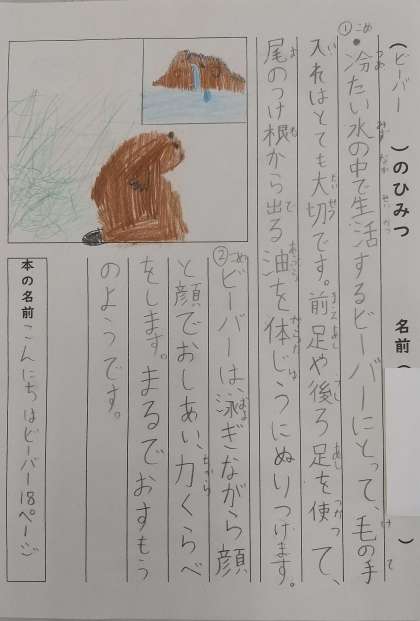 （ビーバー　）のひみつ　名前（　）
①こめ
・冷たい水の中で生活するビーバーにとって、毛の手
入れはとても大切です。前足や後ろ足を使って、
尾のつけ根から出る油を体じうにぬりつけます。
②こめ
ビーバーは、泳ぎながら顔
と顔でおしあい、力くらべ
をします。まるでおすもう
のようです。
本の名前 こんにちはビーバー18ページ